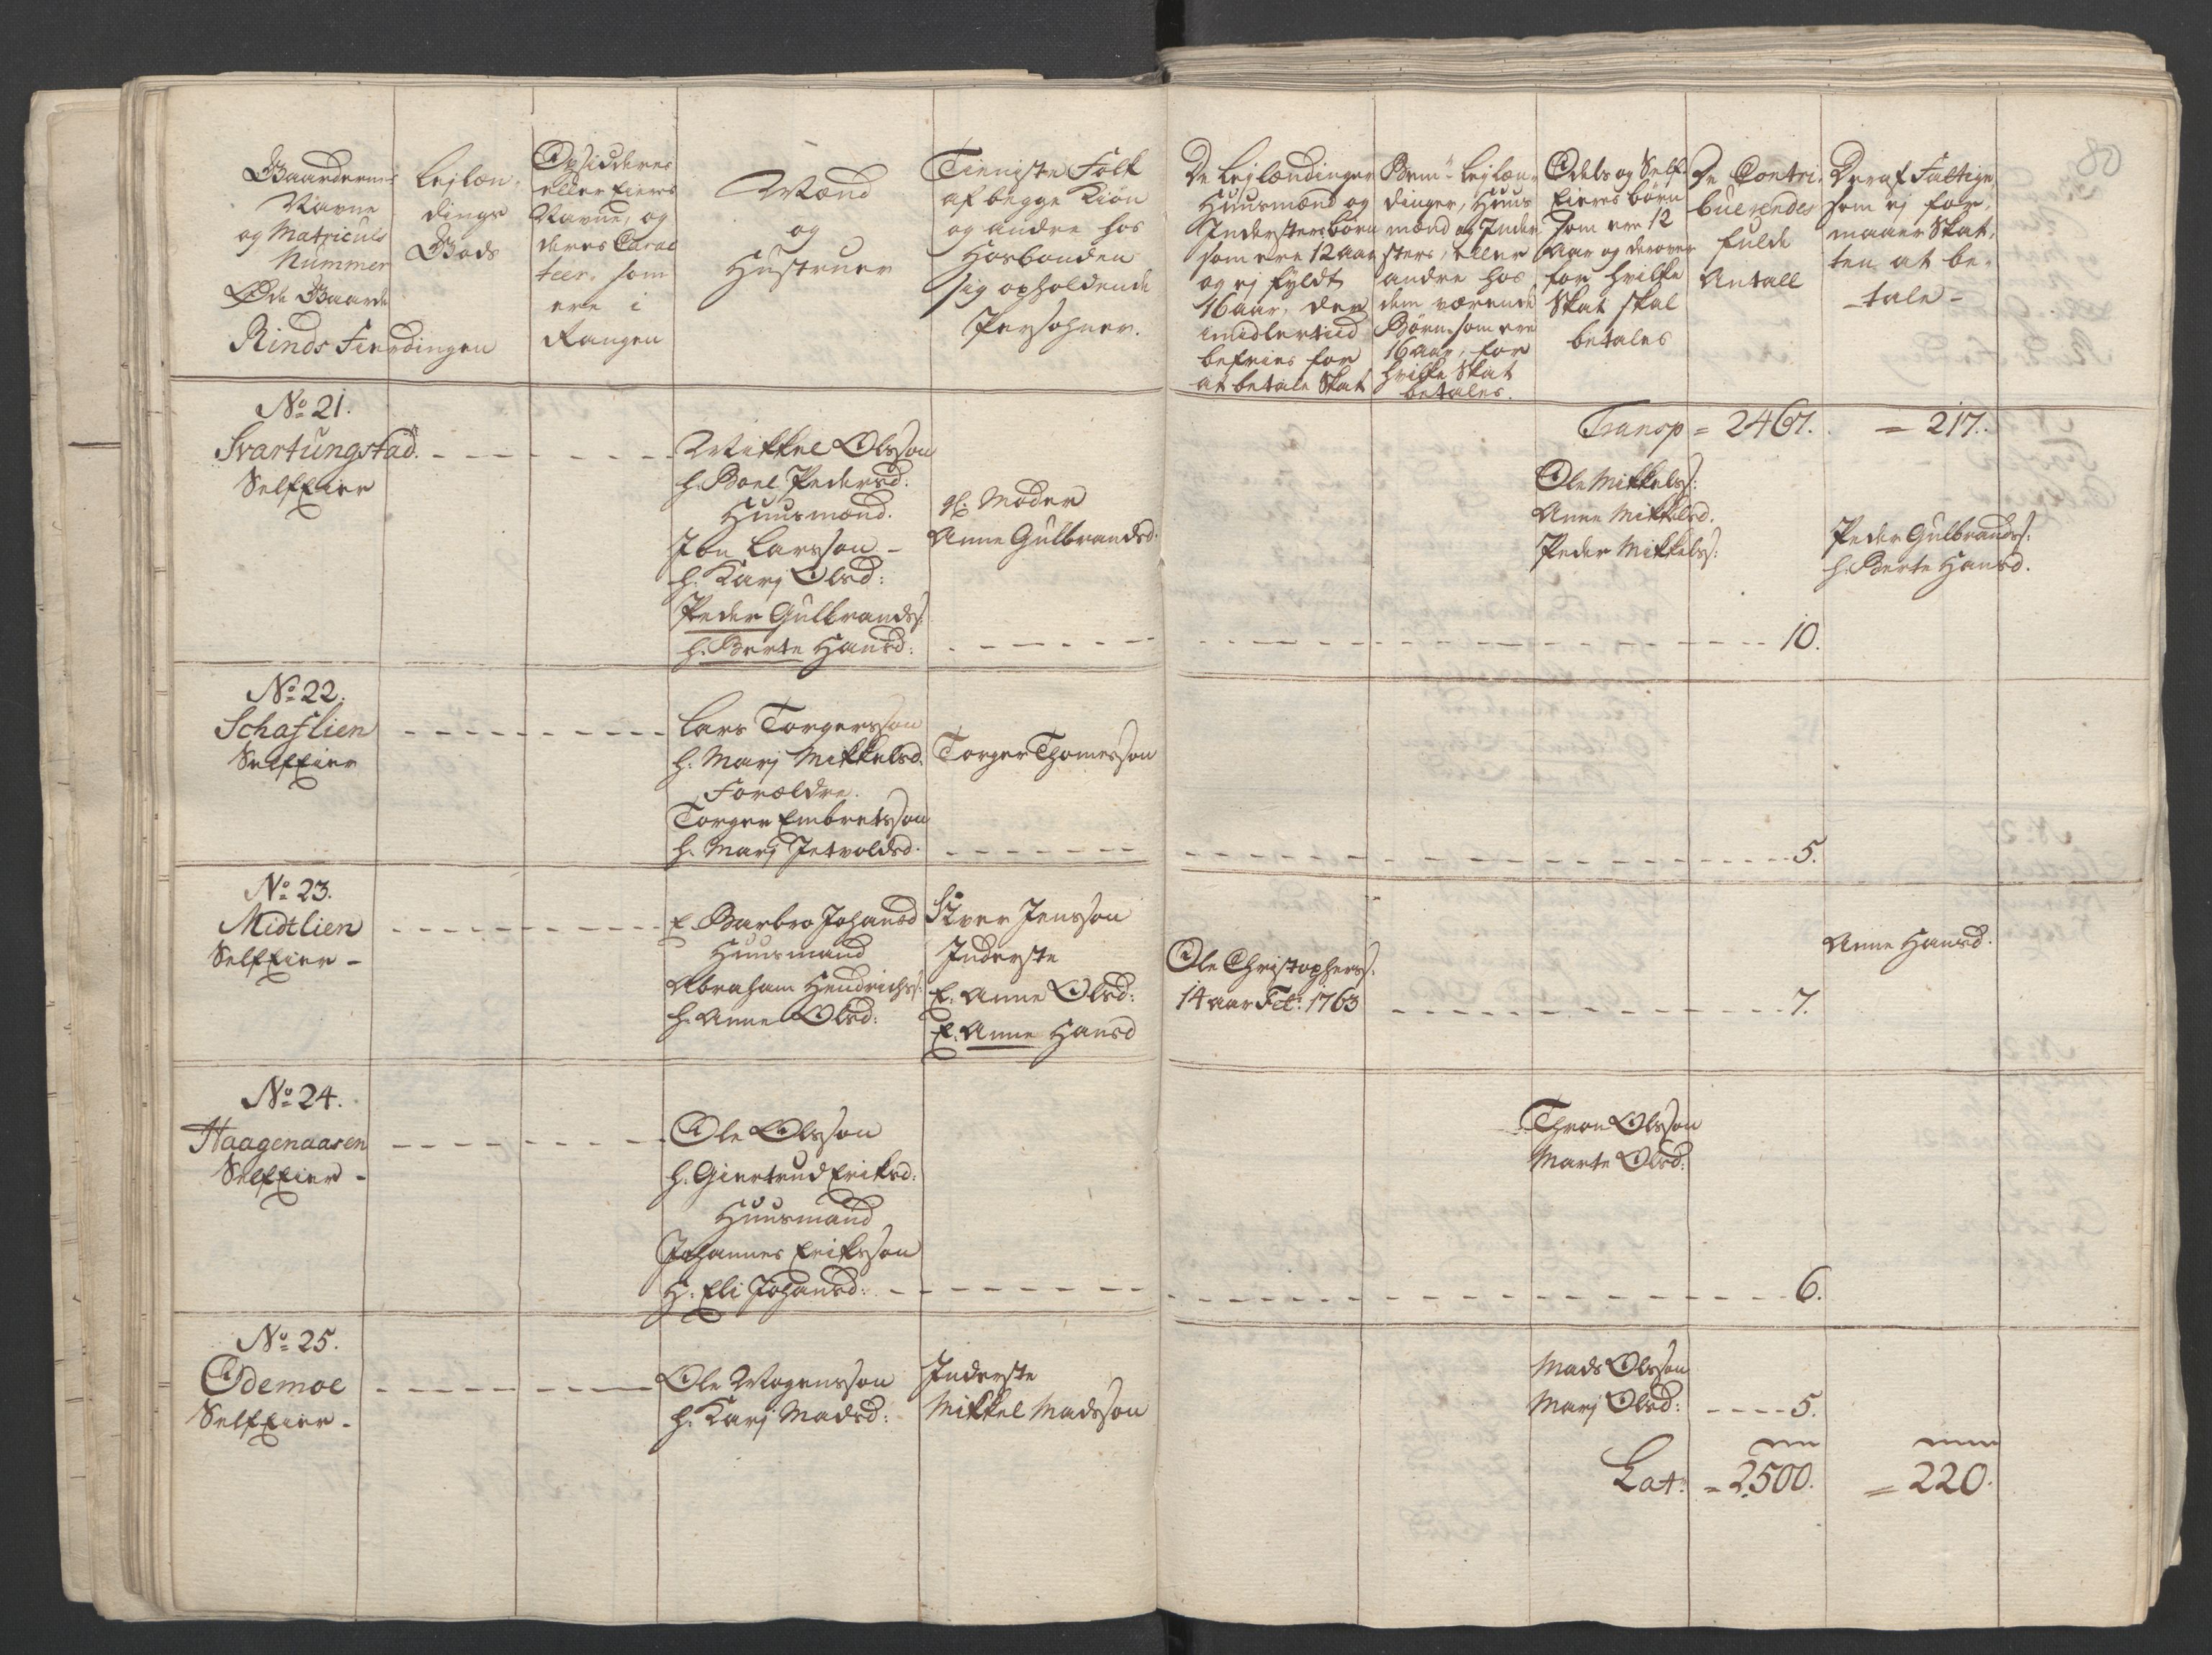 Gaardernes
Navne
og Matriculs
Nummer
Øde Gaarde
Rinds Fierdingen
Lejlæn-
dings
Gods
Opsiddernes
eller Eiers
Navne, og
deres Carac
teer, som
ere i
Rangen
Mænd
og
Hustruer
Tieniste Folk
af begge Kiøn
og andre hos
Hosbonden
sig opholdende
Persohner.
De Lejlændinger
Huusmænd og
Inderstersbørn
som ere 12 aar
og ej fyldt
16 aar, der
imidlertiid
befries for
at betale Skat
Bem: Lejlæn-
dinger, Huus
mænd og Inder
sters, eller
andre hos
dem værende
Børn som ere
16 aar, for
hvilke Skat
betales.
Odels og Self-
Eieres børn
som ere 12
Aar og derover
for hvilke
Skat skal
betales
De Contri-
buerendes
fulde
Antall
Deraf Fattige
som ej for-
maaer Skat-
ten at be-
tale-
No 21.
Svartungstad
SelfEier
Mikkel Olsson
h. Boel Pedersd:
Huusmænd.
Jon Larsson -
h. Karj Olsd:
Peder Gulbrands:
h. Berte Hansd:
Moder
Anne Gulbrandsd.
Transp = 2467. = 217.
Ole Mikkels:
Anne Mikkelsd.
Peder Mikkels:
10.
Peder Gulbrands:
h. Berte Hansd.
No 22.
Schaflien
SelfEier
Lars Torgersson
h. Marj Mikkelsd.
Forældre.
Torger Embretsson
h. Marj Jetvoldsd.
Torger Thomesson
5.
No 23.
Midtlien
SelfEier -
E. Barbro Johansd
Huusmand
Abraham Hendrichs:
h. Anne Olsd:
Iver Jensson
Inderste
E. Anne Olsd:
E. Anne Hansd
Ole Christophers:
14 aar Feb: 1763
7.
Anne Hansd.
No 24.
Haagenaasen
SelfEier -
Ole Olsson
h. Giertrud Eriksd:
Huusmand
Johannes Eriksson
H. Eli Johansd:
Thron Olsson
Marte Olsd:
6.
No 25.
Odemoe
SelfEier -
Ole Mogensson
h. Karj Madsd:
Inderste
Mikkel Madsson
Mads Olsson
Marj Olsd: 5.
Lat: = 2500. = 220.